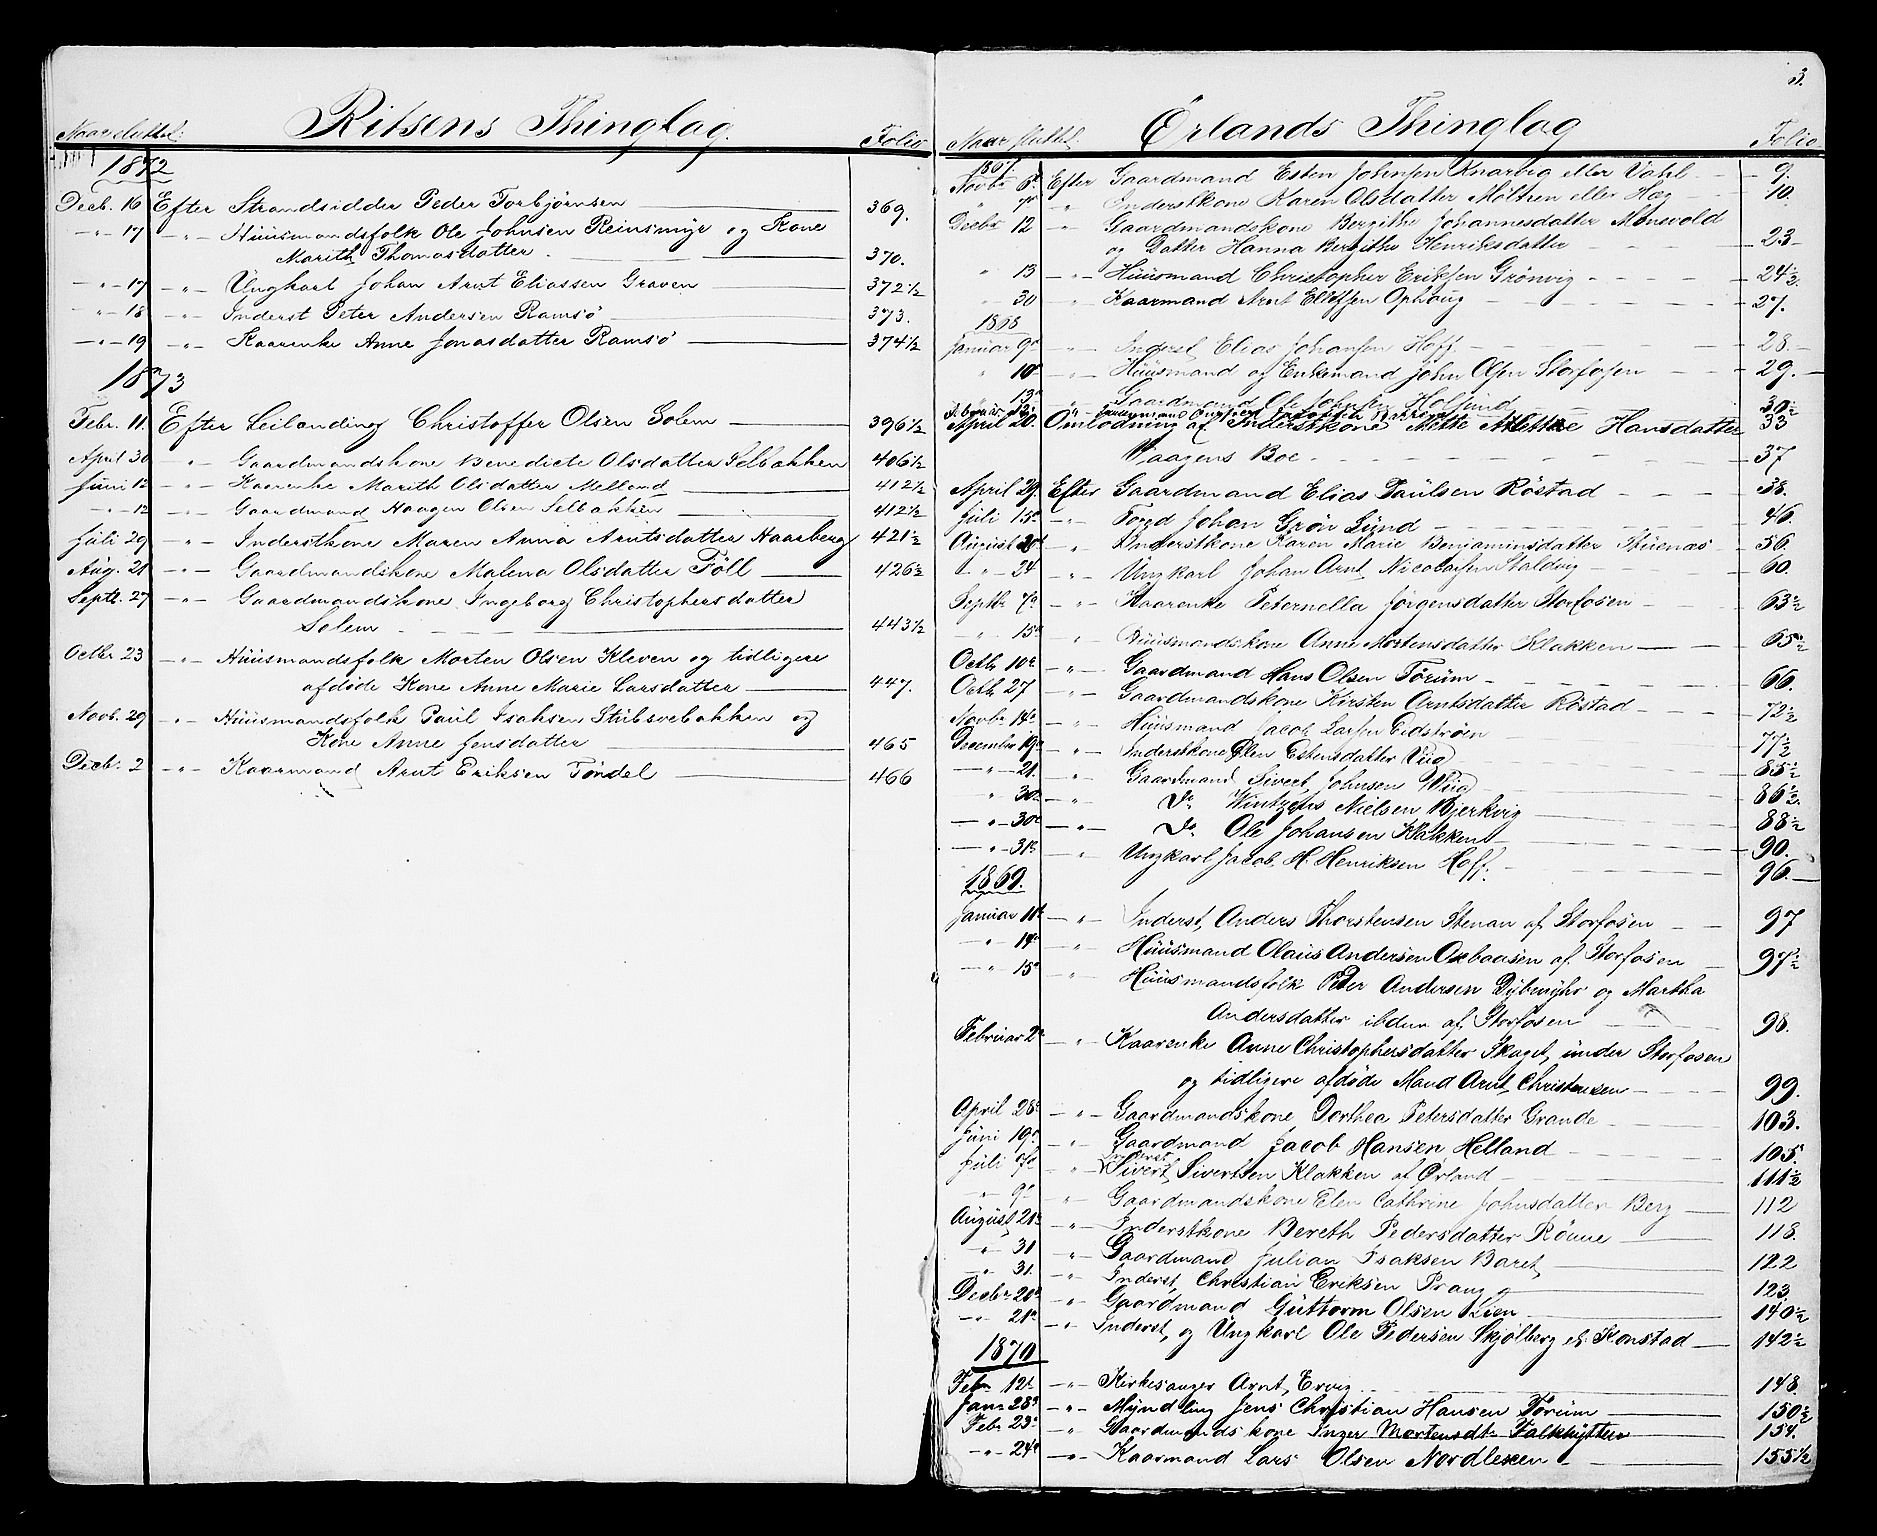 Ritsens Thinglag.
Naar sluttet: Folio
1872
Decb. 16 Efter Strandsidder Peder Torbjørnsen 369.
-"- 17 -"- Huusmandsfolk Ole Johnsen Reinsmyr og Kone
Marith Thomasdatter 370.
-"- 17 -"- Ungkarl Johan Arnt Eliassen Graven 372 1/2
-"- 18 -"- Inderst Peter Andersen Ramsø 373.
-"- 19 -"- Kaarenke Anne Jonasdatter Ramsø 374 1/2
1873
Febr. 11. Efter Leilænding Christoffer Olsen Solem 396 1/2
April 30 -"- Gaardmandskone Benedicte Olsdatter Selbækken 406 1/2
Juni 12 -"- Kaarenke Marith Olsdatter Melland 412 1/2
-"- 12 -"- Gaardmand Haagen Olsen Selbækken 412 1/2
Juli 29 -"- Inderstkone Maren Anna Arntsdatter Haarberg 421 1/2
Aug. 21 -"- Gaardmandskone Malena Olsdatter Föll 426 1/2
Septb. 27 -"- Gaardmandskone Ingeborg Christophersdatter
Solem 443 1/2
Octbr. 23 -"- Huusmandsfolk Morten Olsen Kleven og tidligere
afdøde Kone Anne Marie Larsdatter 447.
Novb. 29 -"- Huusmandsfolk Paul Isaksen Stubsvebakken og
Kone Anne Jensdatter 465
Decb. 2 -"- Kaarmand Arnt Eriksen Tøndel 466
3.
Ørlands Thinglag
Naar sluttet. Folio
1867.
Novbr 6te Efter Gaardmand Esten Johnsen Knarvig eller Vahl 9.
" 7de -"- Inderstkone Karen Olsdatter Møltzen eller Hæg 10.
Decbr 12 -"- Gaardmandskone Bergithe Johannesdatter Monsvold
og Datter Hanna Bergithe Henriksdatter 23
" 13 -"- Huusmand Christopher Eriksen Grønvig 24 1/2
" 30 " Kaarmand Arnt Ellefsen Ophaug 27.
1868
Januar 9de " Inderst Elias Johansen Hoff. 28.
" 10de -"- Huusmand og Enkemand John Olsen Storfosen 29.
" 13de -"- Gaardmand Ole Johnsen 30 1/2
Februar Gaardmand 33
April 20. Omlodning af Inderstkone Mette Mettee Hansdatter
Vaagens Boe 37
April 29. Efter Gaardmand Elias Paulsen Røstad 38.
Juli 15de -"- Foged Johan Grön Lund 46.
August 20de " Inderstkone Karen Marie Benjaminsdatter Stuenæs 56.
-"- 24 -"- Ungkarl Johan Arnt Nicolaisen Staldvig 60.
Septbr 7de -"- Kaarenke Peternella Jörgensdatter Storfosen 63 1/2
-"- 15de " Huusmandskone Anne Mortensdatter Klakken 65 1/2
Octbr 10de " Gaardmand Hans Olsen Törum 66.
Octbr 27 -"- Gaardmandskone Kirsten Arntsdatter Röstad 72 1/2
Novbr 14de " Huusmand Jacob Larsen Eidströen 77 1/2
December 19de -"- Inderstkone Elen Estensdatter Viig 85 1/2
-"- 21. " Gaardmand Sivert Johnsen Wiig 86 1/2
" 30te -"- Do Wintzens Nielsen Bjerkvig 88 1/2
-"- 30te -"- Do Ole Johansen Klakken 90.
-"- 31te -"- Ungkarl Jacob H. Henriksen Hoff. 96.
1869.
Januar 11te -"- Inderst, Anders Thorstensen Stenan af Storfosen 97
-"- 14de " Huusmand Olaus Andersen Oxbaasen af Storfosen 97 1/2
-"- 15de " Huusmandsfolk Peter Andersen Dybvighr og Martha
Andersdatter ibdem af Storfosen 98.
Februar 2de -"- Kaarenke Anne Christophersdatter Skaget, under Storfosen
og tidligere afdøde Mand Arnt Christensen 99.
April 28de -"- Gaardmandskone Dorthea Petersdatter Grande 103.
Juni 19de " Gaardmand Jacob Hansen Helland 105.
Juli 7de " Inderst Sivert Sivertsen Klakken af Ørland 111 1/2
" 9de " Gaardmandskone Elen Cathrine Johnsdatter Berg 112
August 21de -"- Inderstkone Bereth Pedersdatter Rönne 118.
-"- 31 " Gaardmand Julian Isaksen Baret 122
-"- 31. " Inderst, Christian Eriksen Prang 123.
Decbr 20de " Gaardmand Guttorm Olsen Lien 140 1/2
-"- 21de -"- Inderst, og Ungkarl Ole Pedersen Skjølberg el. Konstad 142 1/2
1870
Febr 12te -"- Kirkesanger Arnt, Ervig 148.
Janr 28de -"- Myndling Jens Christian Hansen Törum 150 1/2
Febr 23de -"- Gaardmandskone Inger Mortensdtr Falkhytten 154.
-"- 24de -"- Kaarmand Lars Olsen Nordlexen 155 1/2